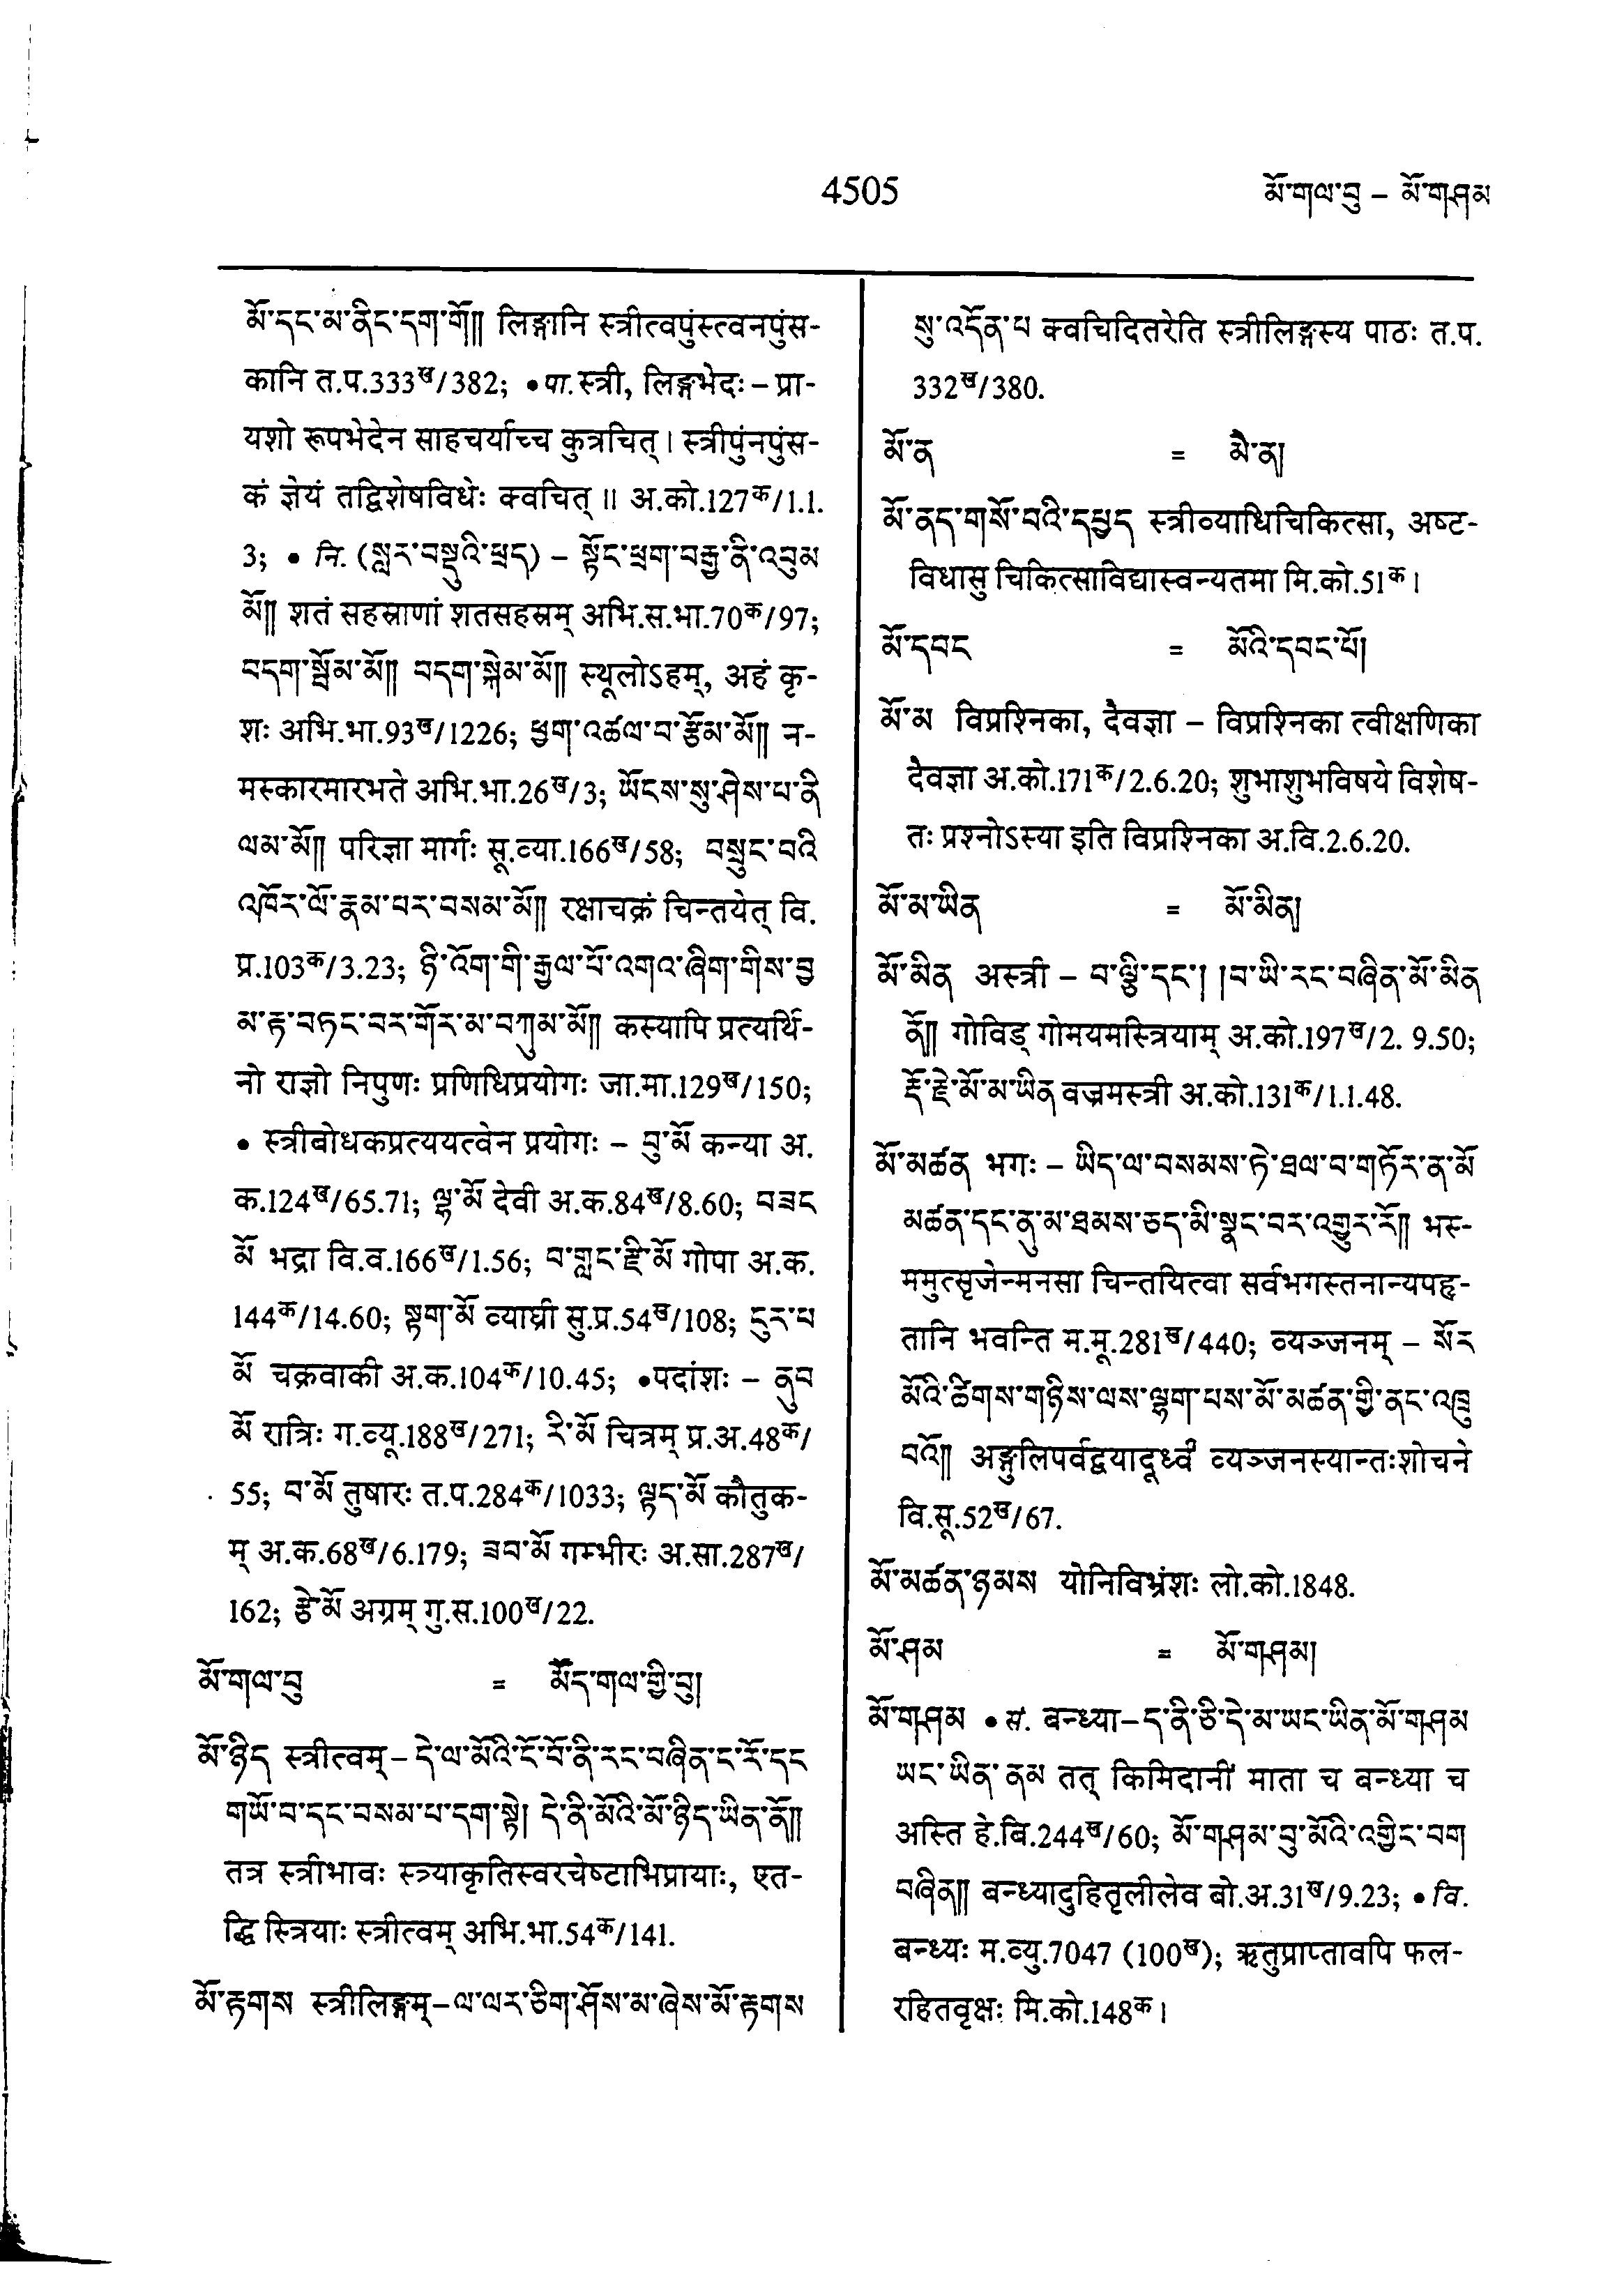 4505
མོ་གལ་བུ – མོ་གཤམ
མོ་དང་མ་ནིང་དག་གོ།། लिङ्गानि स्त्रीत्वपुंस्त्वनपुंस-
कानि त.प.333ख/382; •पा. स्त्री, लिङ्गभेदः – प्रा-
यशो रूपभेदेन साहचर्याच्च कुत्रचित् । स्त्रीपुंनपुंस-
कं ज्ञेयं तद्विशेषविधेः क्वचित् ॥ अ.को.127क/1.1.
3; • नि. (སླར་བསྡུའི་ཕྲད) – སྟོང་ཕྲག་བརྒྱ་ནི་འབུམ
མོ།། शतं सहस्राणां शतसहस्रम् अभि.स.भा.70क/97;
བདག་སྦོམ་མོ།། བདག་སྐེམ་མོ།། स्थूलोऽहम्, अहं कृ-
शः अभि.भा.93ख/1226; ཕྱག་འཚལ་བ་རྩོམ་མོ།། न-
मस्कारमारभते अभि.भा.26ख/3; ཡོངས་སུ་ཤེས་པ་ནི
ལམ་མོ།། परिज्ञा मार्गः सू.व्या.166ख/58; བསྲུང་བའི
འཁོར་ལོ་རྣམ་པར་བསམ་མོ།། रक्षाचक्रं चिन्तयेत् वि.
प्र.103क/3.23; ཉི་འོག་གི་རྒྱལ་པོ་འགའ་ཞིག་གིས་བྱ
མ་རྟ་བཏང་བར་གོར་མ་བཀུམ་མོ།། कस्यापि प्रत्यर्थि-
नो राज्ञो निपुणः प्रणिधिप्रयोगः जा.मा.129ख/150;
• स्त्रीबोधकप्रत्ययत्वेन प्रयोगः – བུ་མོ कन्या अ.
क.124ख/65.71; ལྷ་མོ देवी अ.क.84ख/8.60; བཟང
མོ भद्रा वि.व.166ख/1.56; བ་གླང་རྫི་མོ गोपा अ.क.
144क/14.60; སྟག་མོ व्याघ्री सु.प्र.54ख/108; ངུར་པ
མོ चक्रवाकी अ.क.104क/10.45; •पदांशः – ནུབ
མོ रात्रिः ग.व्यू.188ख/271; རི་མོ चित्रम् प्र.अ.48क/
55; བ་མོ तुषारः त.प.284क/1033; ལྟད་མོ कौतुक-
म् अ.क.68ख/6.179; ཟབ་མོ गम्भीरः अ.सा.287ख/
162; རྩེ་མོ अग्रम् गु.स.100ख/22.
མོ་གལ་བུ = མོད་གལ་གྱི་བུ།
མོ་ཉིད स्त्रीत्वम् – དེ་ལ་མོའི་ངོ་བོ་ནི་རང་བཞིན་ང་རོ་དང
གཡོ་བ་དང་བསམ་པ་དག་སྟེ། དེ་ནི་མོའི་མོ་ཉིད་ཡིན་ནོ།།
तत्र स्त्रीभावः स्त्र्याकृतिस्वरचेष्टाभिप्रायाः, एत-
द्धि स्त्रियाः स्त्रीत्वम् अभि.भा.54क/141.
མོ་རྟགས स्त्रीलिङ्गम्–ལ་ལར་ཅིག་ཤོས་མ་ཞེས་མོ་རྟགས
སུ་འདོན་པ क्वचिदितरेति स्त्रीलिङ्गस्य पाठः त.प.
332ख/380.
མོ་ན = མེ་ན།
མོ་ནད་གསོ་བའི་དཔྱད स्त्रीव्याधिचिकित्सा, अष्ट-
विधासु चिकित्साविद्यास्वन्यतमा मि.को.51क।
མོ་དབང = མོའི་དབང་པོ།
མོ་མ विप्रश्निका, दैवज्ञा – विप्रश्निका त्वीक्षणिका
दैवज्ञा अ.को.171क/2.6.20; शुभाशुभविषये विशेष-
तः प्रश्नोऽस्या इति विप्रश्निका अ.वि.2.6.20.
མོ་མ་ཡིན = མོ་མིན།
མོ་མིན अस्त्री – བ་ལྕི་དང་། །བ་ཡི་རང་བཞིན་མོ་མིན
ནོ།། गोविड् गोमयमस्त्रियाम् अ.को.197ख/2. 9.50;
རྡོ་རྗེ་མོ་མ་ཡིན वज्रमस्त्री अ.को.131क/1.1.48.
མོ་མཚན भगः – ཡིད་ལ་བསམས་ཏེ་ཐལ་བ་གཏོར་ན་མོ
མཚན་དང་ནུ་མ་ཐམས་ཅད་མི་སྣང་བར་འགྱུར་རོ།། भस्-
ममुत्सृजेन्मनसा चिन्तयित्वा सर्वभगस्तनान्यपहृ-
तानि भवन्ति म.मू.281ख/440; व्यञ्जनम् – སོར
མོའི་ཚིགས་གཉིས་ལས་ལྷག་པས་མོ་མཚན་གྱི་ནང་འཁྲུ
བའོ།། अङ्गुलिपर्वद्वयादूर्ध्वं व्यञ्जनस्यान्तःशोचने
वि.सू.52ख/67.
མོ་མཚན་ཉམས योनिविभ्रंशः लो.को.1848.
མོ་ཤམ = མོ་གཤམ།
མོ་གཤམ • सं. बन्ध्या–ད་ནི་ཅི་དེ་མ་ཡང་ཡིན་མོ་གཤམ
ཡང་ཡིན་ནམ तत् किमिदानीं माता च बन्ध्या च
अस्ति हे.बि.244ख/60; མོ་གཤམ་བུ་མོའི་འགྱིང་བག
བཞིན།། बन्ध्यादुहितृलीलेव बो.अ.31ख/9.23; • वि.
बन्ध्यः म.व्यु.7047 (100ख); ऋतुप्राप्तावपि फल-
रहितवृक्षः मि.को.148क।